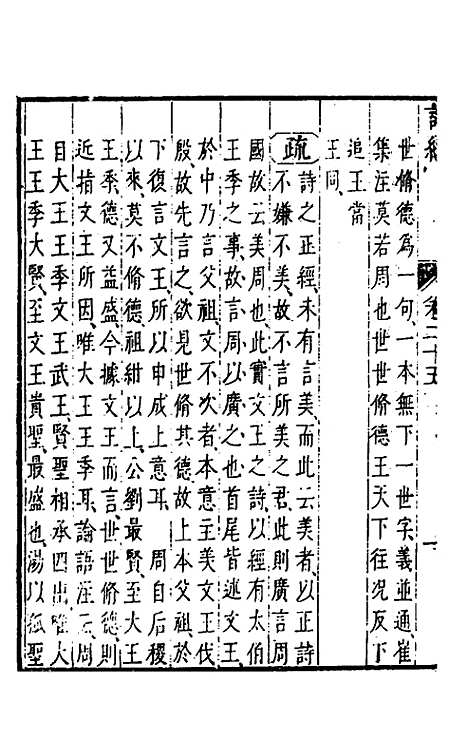 世脩德爲一句一本無下一世字義並通崔
集注莫若周也世世脩德王天下往況反下
追王當
王同
疏 詩之正經未有言美而此云美者以正詩
不嫌不美故不言所美之君此則廣言周
國故云美周也此實文王之詩以經有太伯
王季之事故言周以廣之也首尾皆述文王
於中乃言父祖文不次者本意主美文王伐
殷故先言之欲見世脩其德故上本父祖於
下復言文王所以申成上意耳 周自后稷
以來莫不脩德祖紺以上公劉最賢至大王
王季德又益盛今據文王而言世世脩德則
近指文王所因唯大王王季耳論語注云周
自大王王季文王武王賢聖相承四世唯大
王王季大賢至文王貴聖最盛也湯以孤聖
詩經
卷二十五